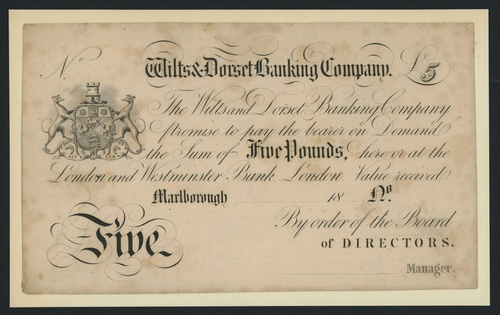 No
Wilts & Dorset Banking Company. £5
The Wilts and Dorset Banking Company
promise to pay the bearer on Demand
the Sum of Five Pounds, here or at the
London and Westminster Bank, London. Value received
Marlborough 18 No.
By order of the Board
Five of DIRECTORS.
Manager.